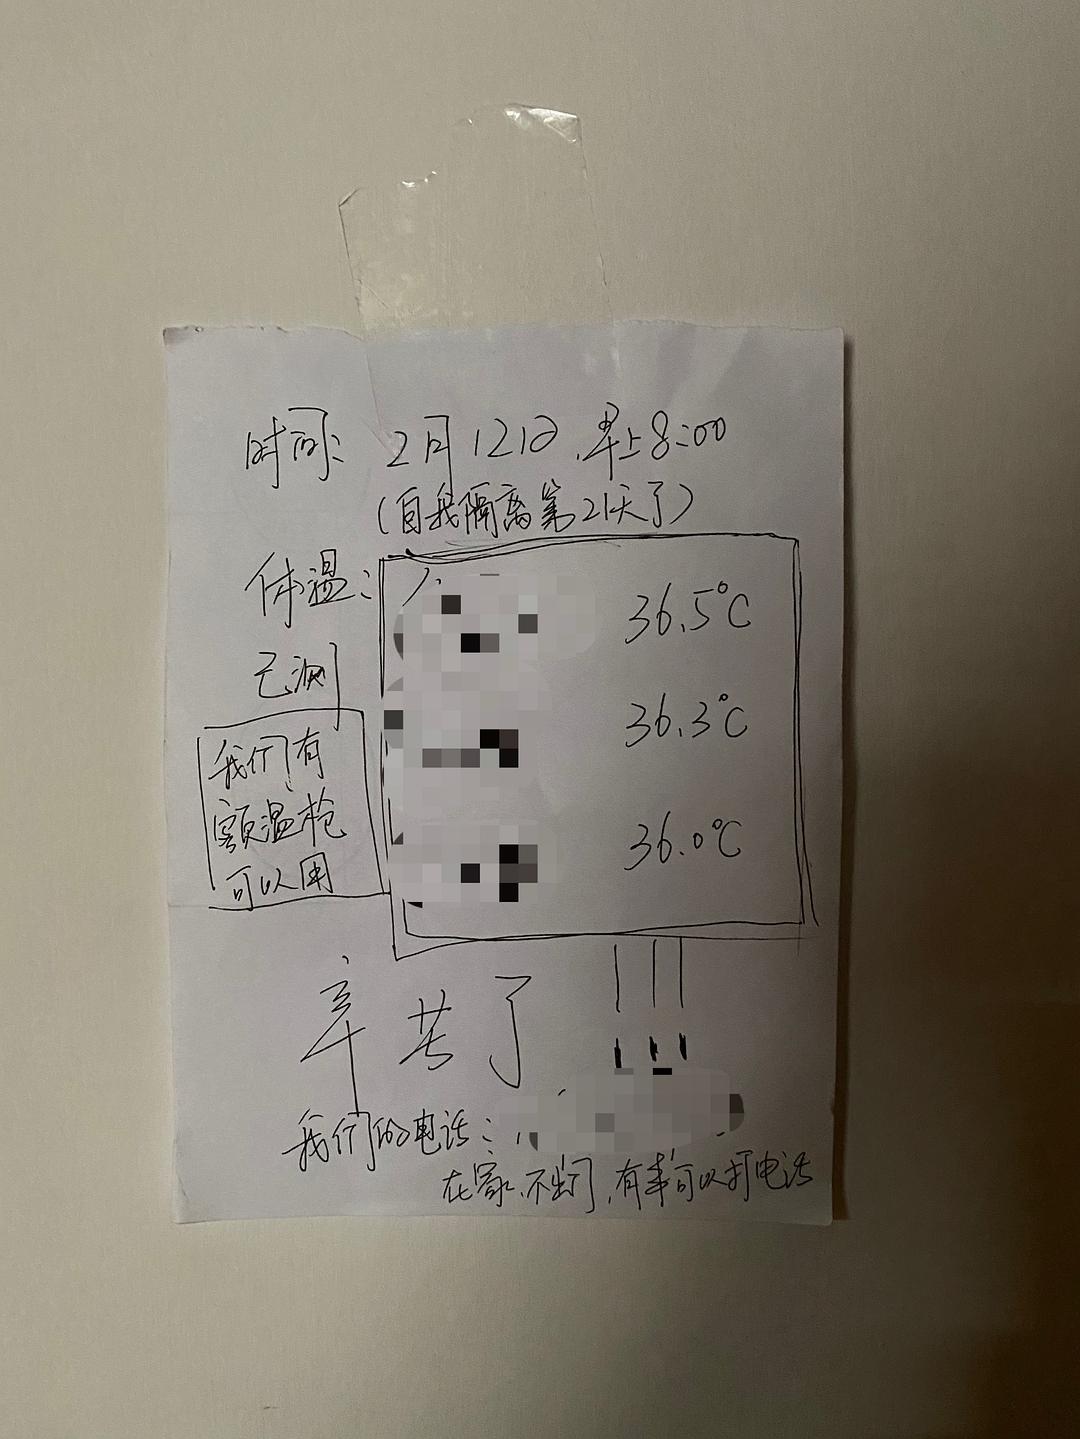 时间: 2月12日,早上8:00
(自我隔离第21天了)
体温:
36.5℃
已测
36.3℃
我们有
额温枪
可以用
36.0℃
辛苦了
!!!
我们的电话:
在家、不出门,有事可以打电话